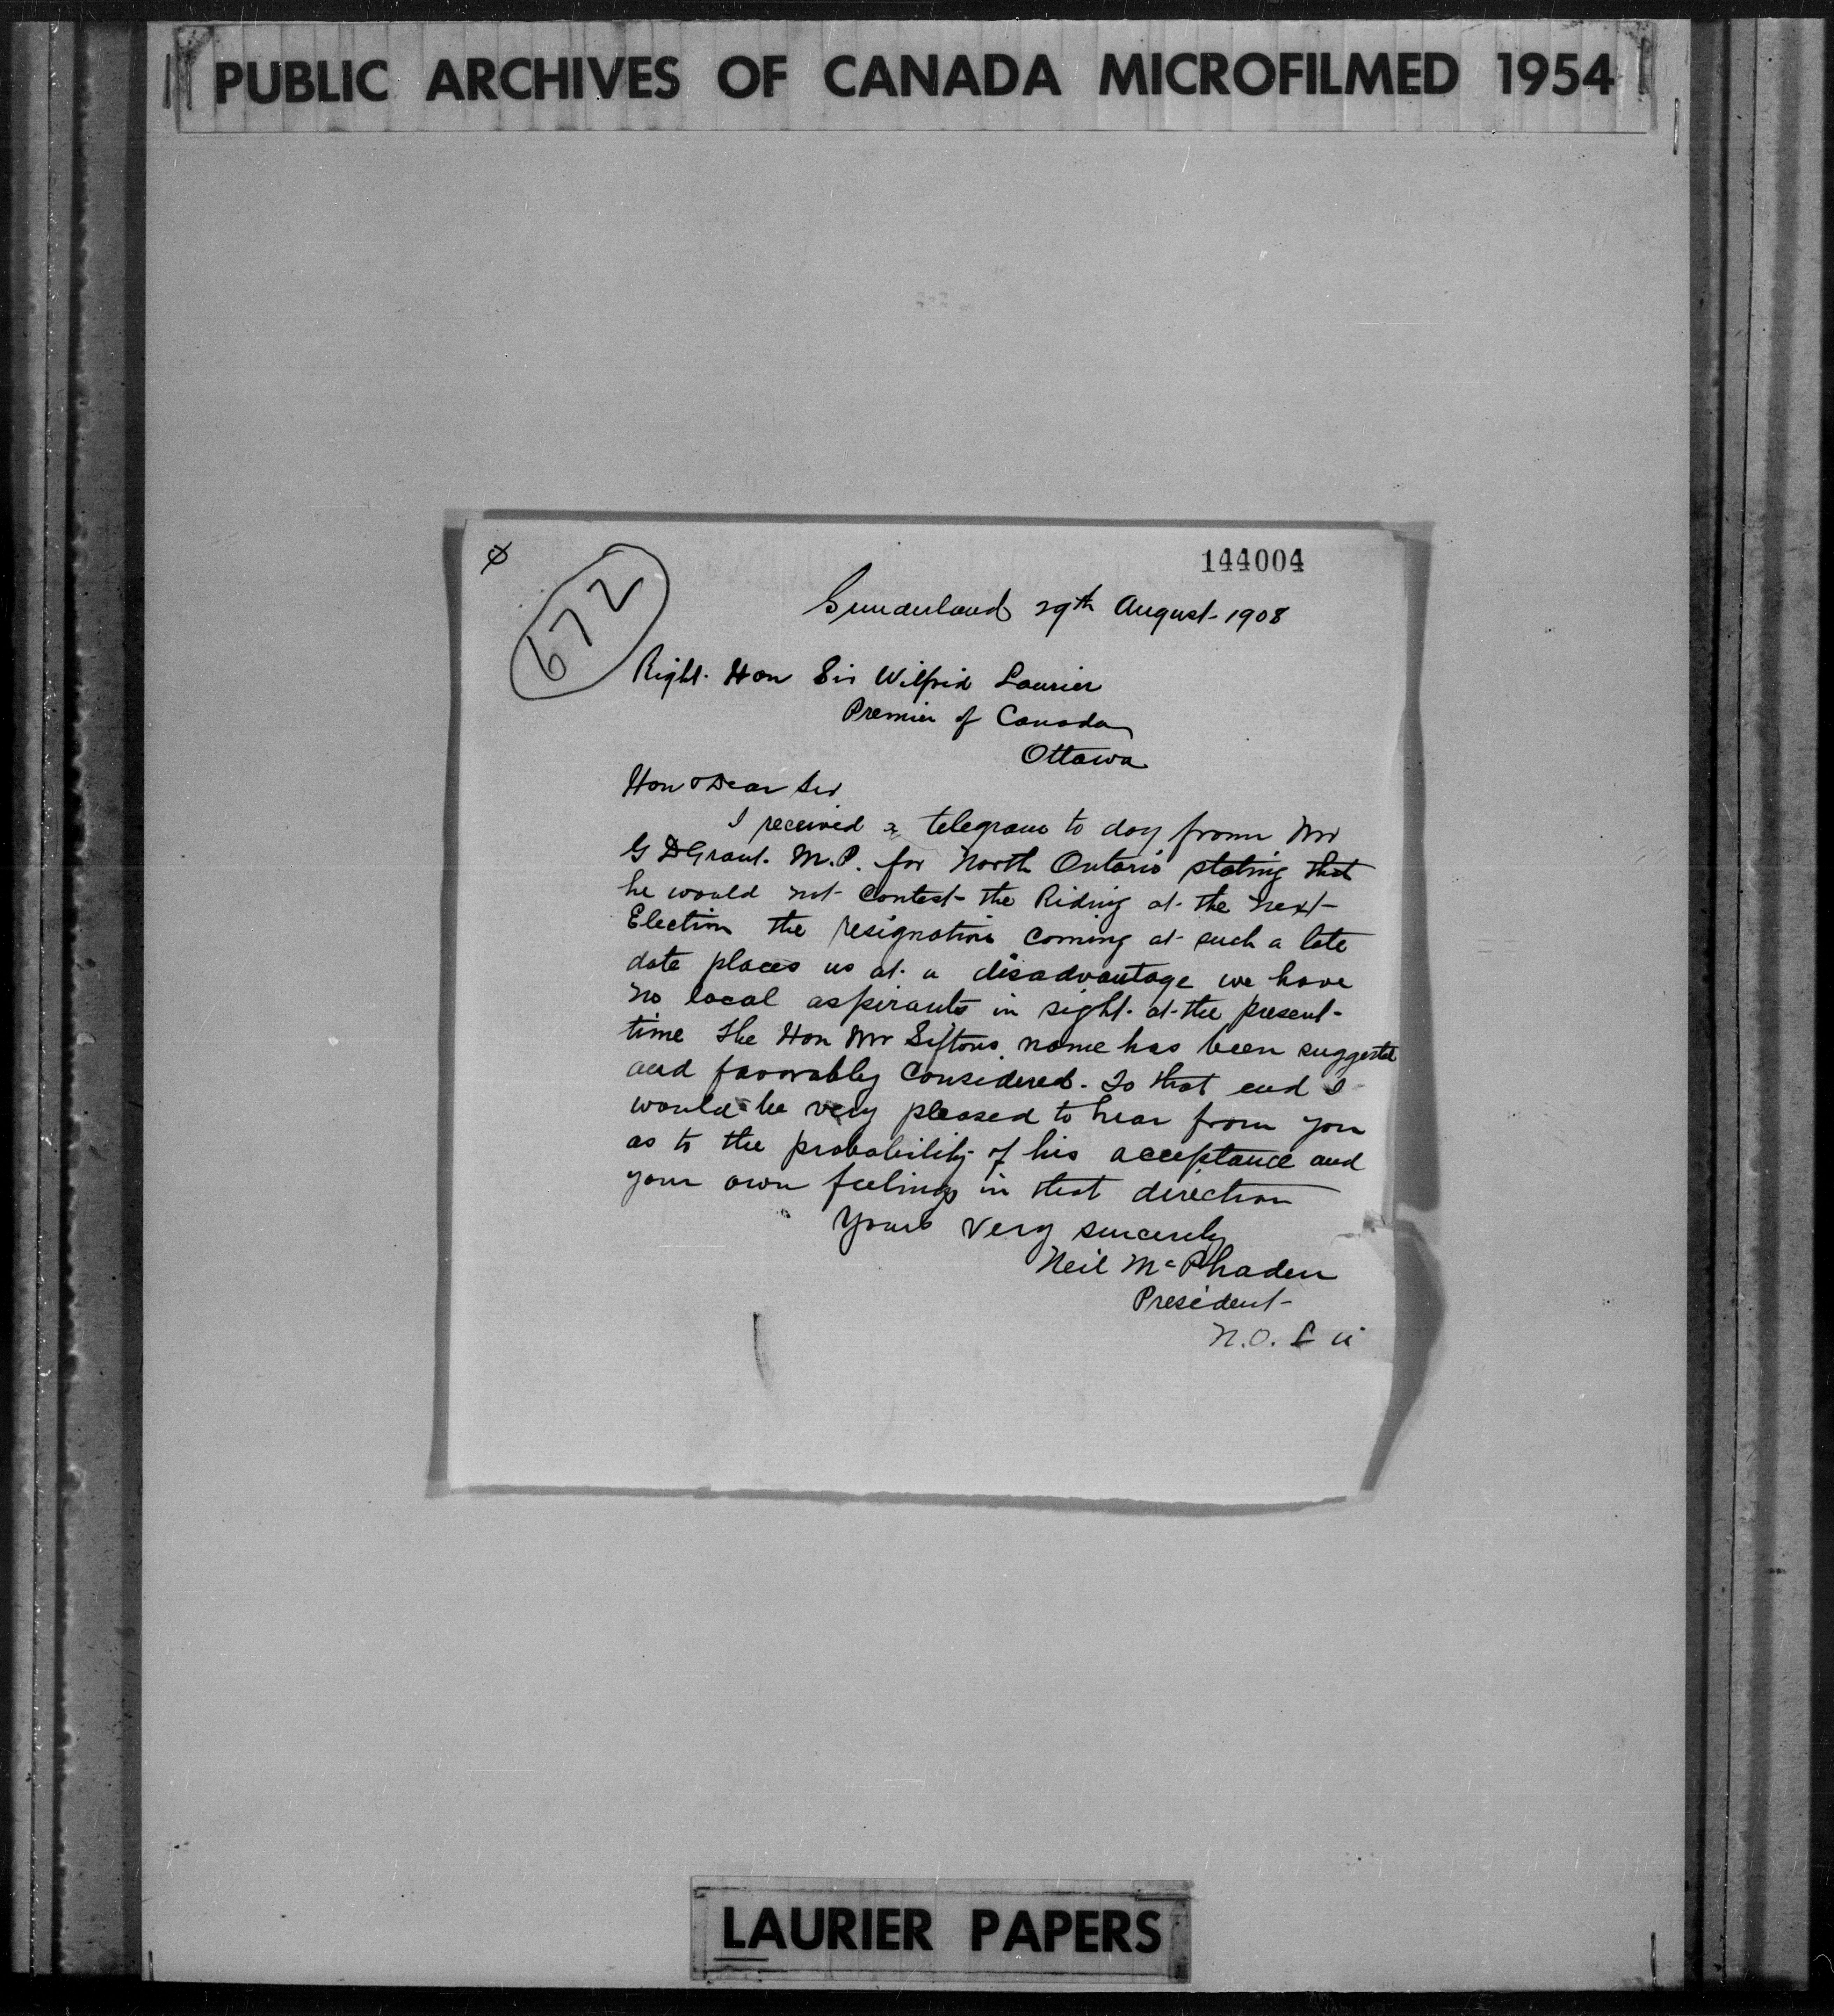 PUBLIC ARCHIVES OF CANADA MICROFILMED 1954
144004
672
Sunderland 29th August 1908
Right Hon Sir Wilfrid Laurier
Premier of Canada
Ottawa
Hon & Dear Sir
I received a telegram to day from Mr
G D Grant. M.P. for North Ontario stating that
he would not contest the Riding at the next
Election the resignation coming at such a late
date places us at a disadvantage we have
no local aspirants in sight at the present
time the Hon Mr Siftons name has been suggested
and favorably considered. To that end I
would be very pleased to hear from you
as to the probability of his acceptance and
your own feelings in that direction
Yours very sincerely
Neil McPhaden
President
N.O. L
LAURIER PAPERS